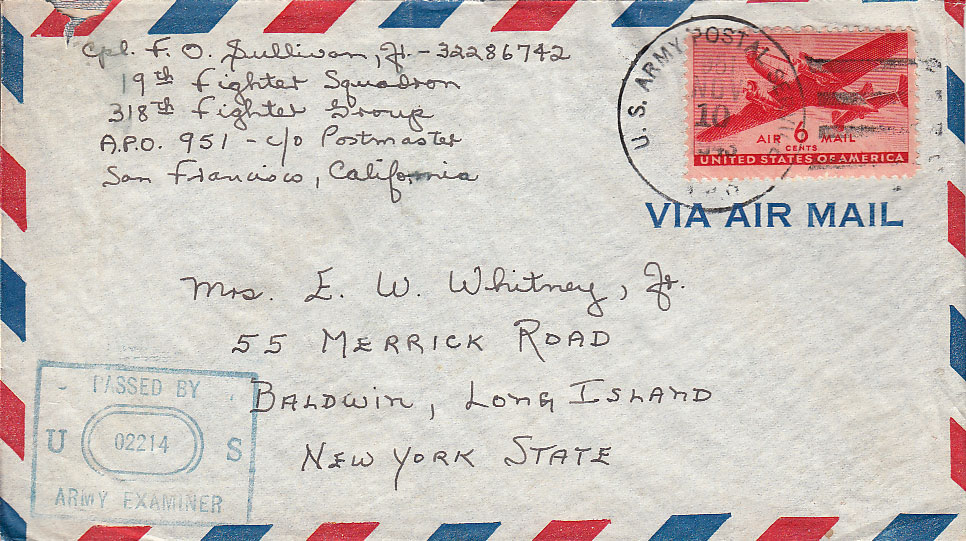 Cpl. F. O. Sullivan, Jr. - 32286742
19th Fighter Squadron
318th Fighter Group
A.P.O. 951 - c/o Postmaster
San Francisco, California
U. S. ARMY POSTAL
NOV
10
AIR 6 MAIL
CENTS
UNITED STATES OF AMERICA
VIA AIR MAIL
Mrs. E. W. Whitney, Jr.
55 MERRICK ROAD
BALDWIN, LONG ISLAND
NEW YORK STATE
PASSED BY
U 02214 S
ARMY EXAMINER